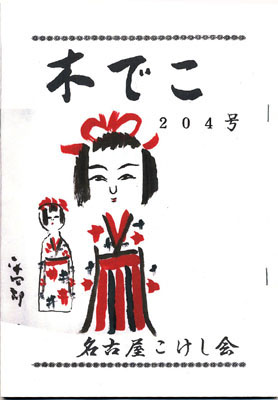 木でこ
204号
名古屋こけし会